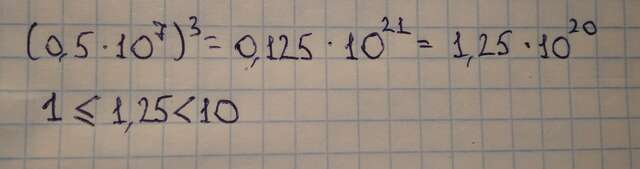 (0,5 · 10⁷)³ = 0,125 · 10²¹ = 1,25 · 10²⁰
1 ⩽ 1,25 < 10